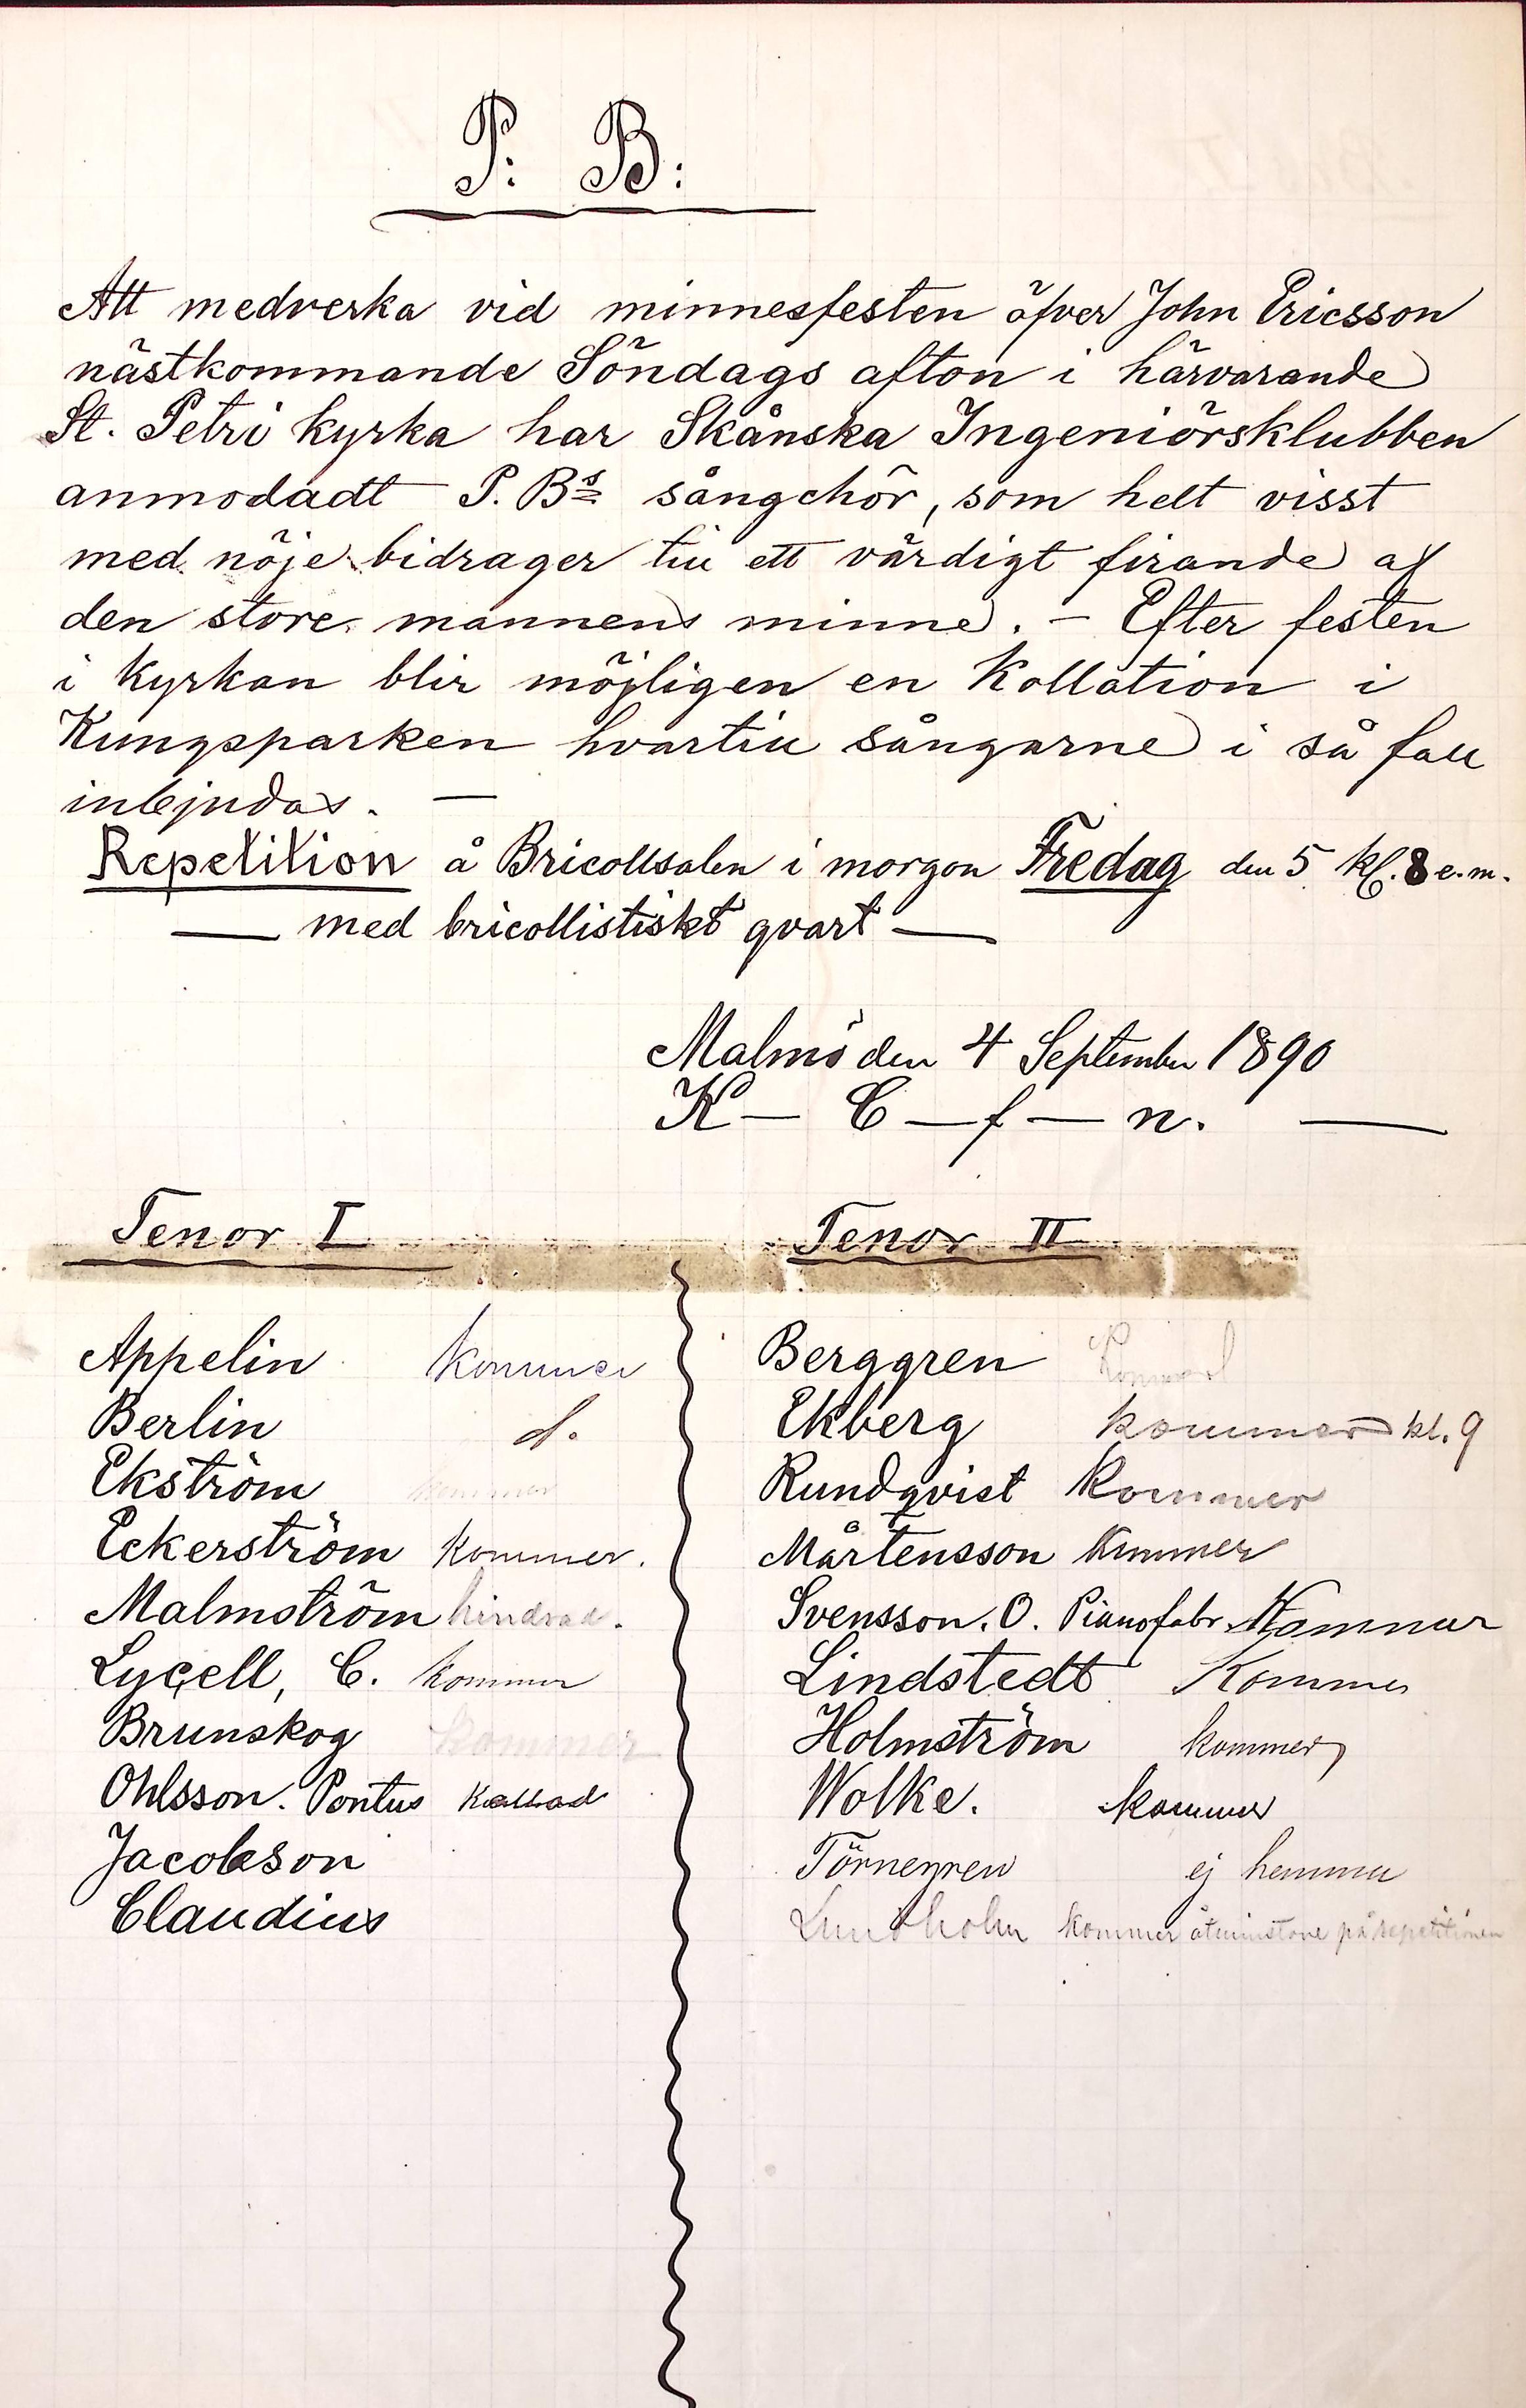 P: B:
Att medverka vid minnesfesten öfver John Ericsson
nästkommande Söndags afton i härvarande
St. Petri kyrka har Skånska Ingeniörsklubben
anmodadt P. Bs sångchör, som helt visst
med nöje bidrager till ett värdigt firande af
den store mannens minne. – Efter festen
i kyrkan blir möjligen en Kollation i
Kungsparken hvartill sångarne i så fall
inbjudas. —
Repetition å Bricollsalen i morgon Fredag den 5 kl. 8 e.m.
— med bricollistiskt qvart —
Malmö den 4 September 1890
K — C — f — n. —
Tenor I
Appelin kommer
Berlin d.
Ekström kommer
Eckerström kommer.
Malmström hindrad.
Lycell, C. kommer
Brunskog kommer
Ohlsson. Pontus kallad
Jacobson
Claudius
Tenor II
Berggren
Ekberg kommer kl. 9
Rundqvist kommer
Mårtensson kommer
Svensson. O. Pianofabr. Kommer
Lindstedt Kommer
Holmström kommer
Wolke. kommer
Törnegren ej hemma
Lundholm kommer åtminstone på repetitionen